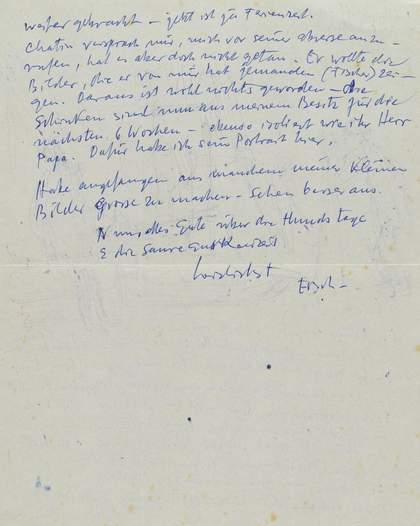 weiter gebracht – jetzt ist ja Ferienzeit.
Chatin versprach mir, mich vor seiner abreise anzu-
rufen, hat es aber doch nicht getan. Er wollte die
Bilder, die er von mir hat jemanden (Fischer) zei-
gen. Daraus ist wohl nichts geworden – die
Schinken sind nun aus meinem Besitz für die
nächsten 6 Wochen – ebenso isoliert wie ihr Herr
Papa. Dafür habe ich sein Portrait hier.
Habe angefangen aus manchem meiner kleinen
Bilder Grosse zu machen – Sehen besser aus.
Nun, alles Gute über die Hundstage
& die Sauregurkenzeit
herzlichst